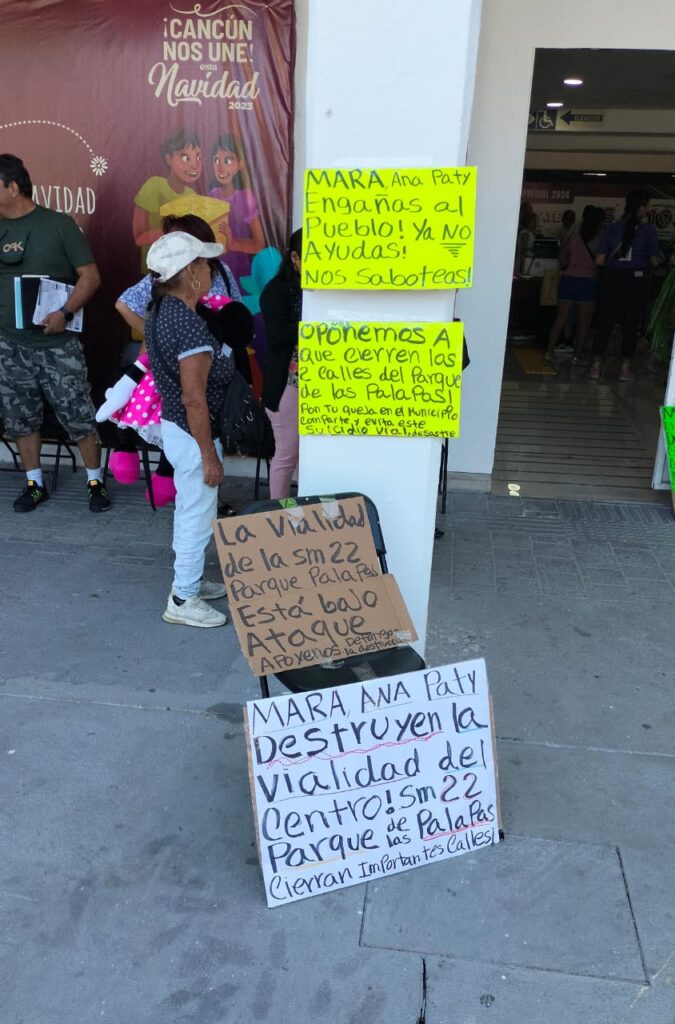 ¡CANCÚN
NOS UNE!
esta
Navidad
2023
NAVIDAD
ELEVADOR
PREDIAL 2024
MARA, Ana Paty
Engañas al
Pueblo! Ya NO
Ayudas!
NOS Saboteas!
OPONEMOS A
que cierren las
2 calles del Parque
de las Palapas!
Pon Tu queja en el Municipio
comparte y evita este
Suicidio vial, desastre
La Vialidad
de la Sm 22
Parque Palapas
Está bajo
Ataque
APOYENOS
la destrucción
MARA, ANA Paty
Destruyen la
Vialidad del
Centro! Sm 22
Parque de las Palapas
Cierran Importantes Calles!